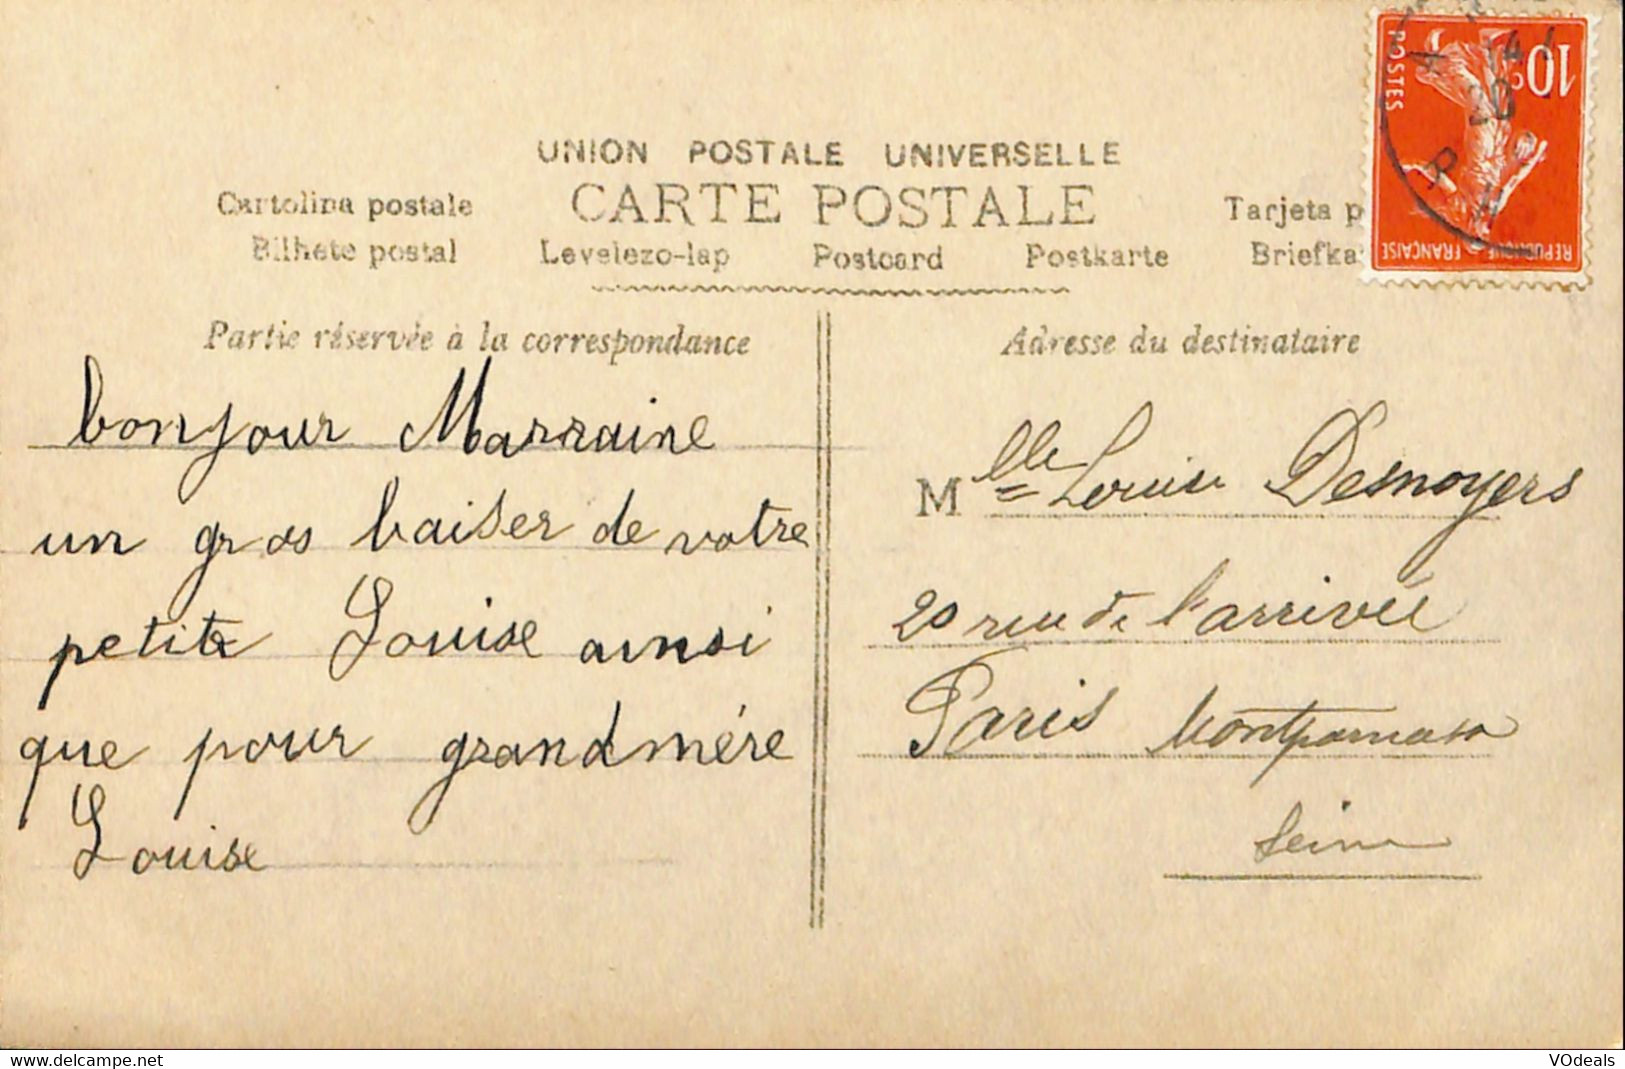 UNION POSTALE UNIVERSELLE
CARTE POSTALE
Cartolina postale
Tarjeta p
Bilhete postal
Levelezo-lap
Postcard
Postkarte
Briefka
10c
POSTES
REPUBLIQUE FRANÇAISE
Partie réservée à la correspondance
bonjour Marraine
un gros baiser de votre
petite Louise ainsi
que pour grandmére
Louise
Adresse du destinataire
Mlle Louise Desnoyers
20 rue de l'arrivée
Paris Montparnasse
Seine
VOdeals